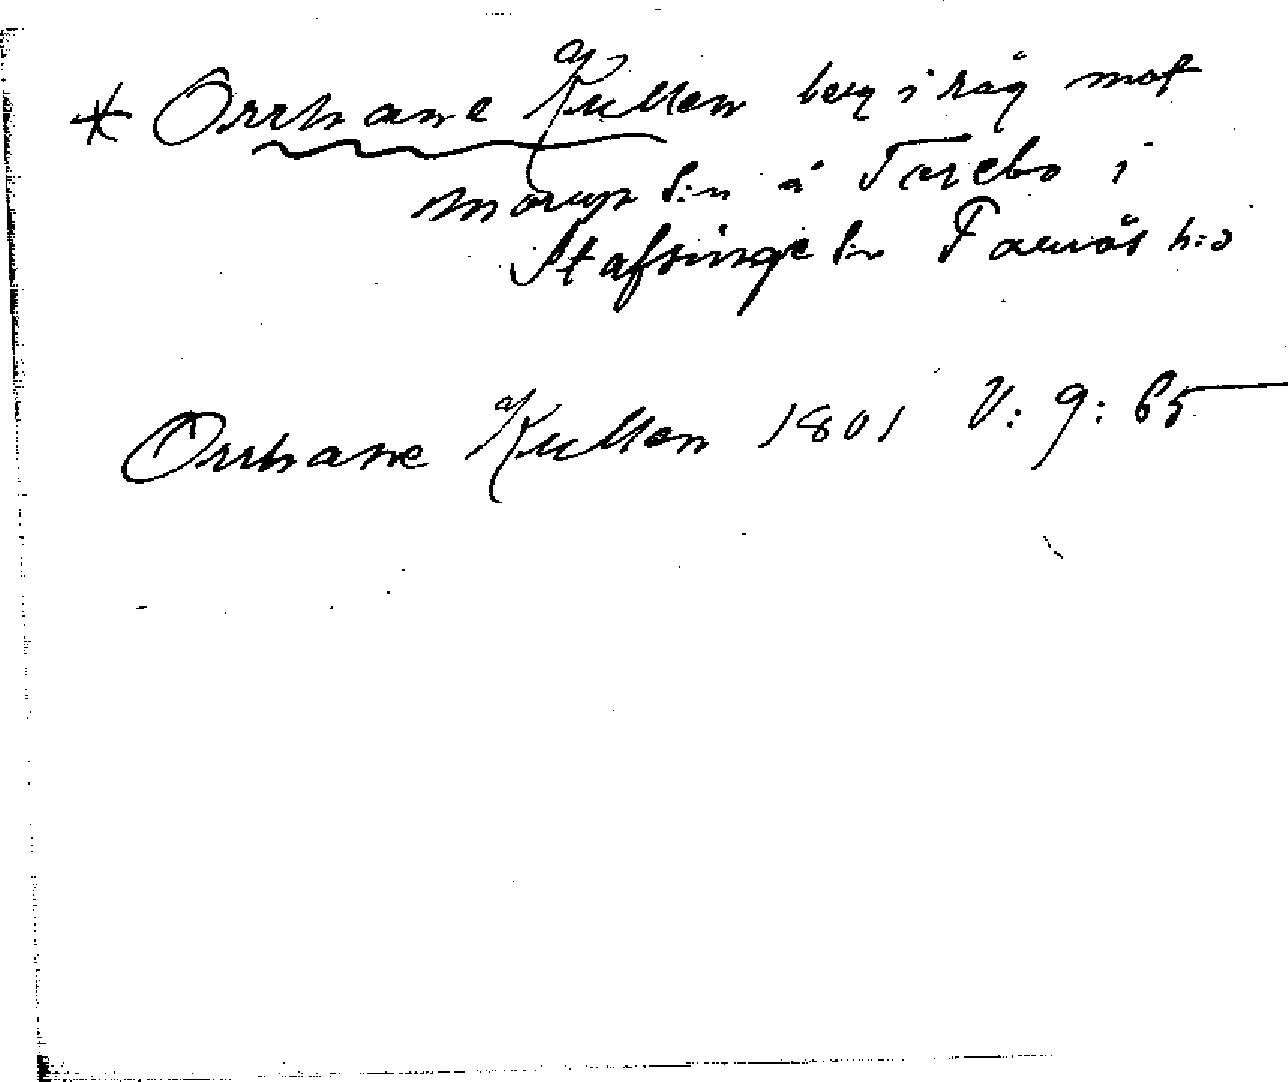 * Orrhane Kullen berg i råg mot
Morup s:n å Torebo i
Stafsinge sn Fauräs h:d
Orrhane Kullen 1801 V: 9: 65